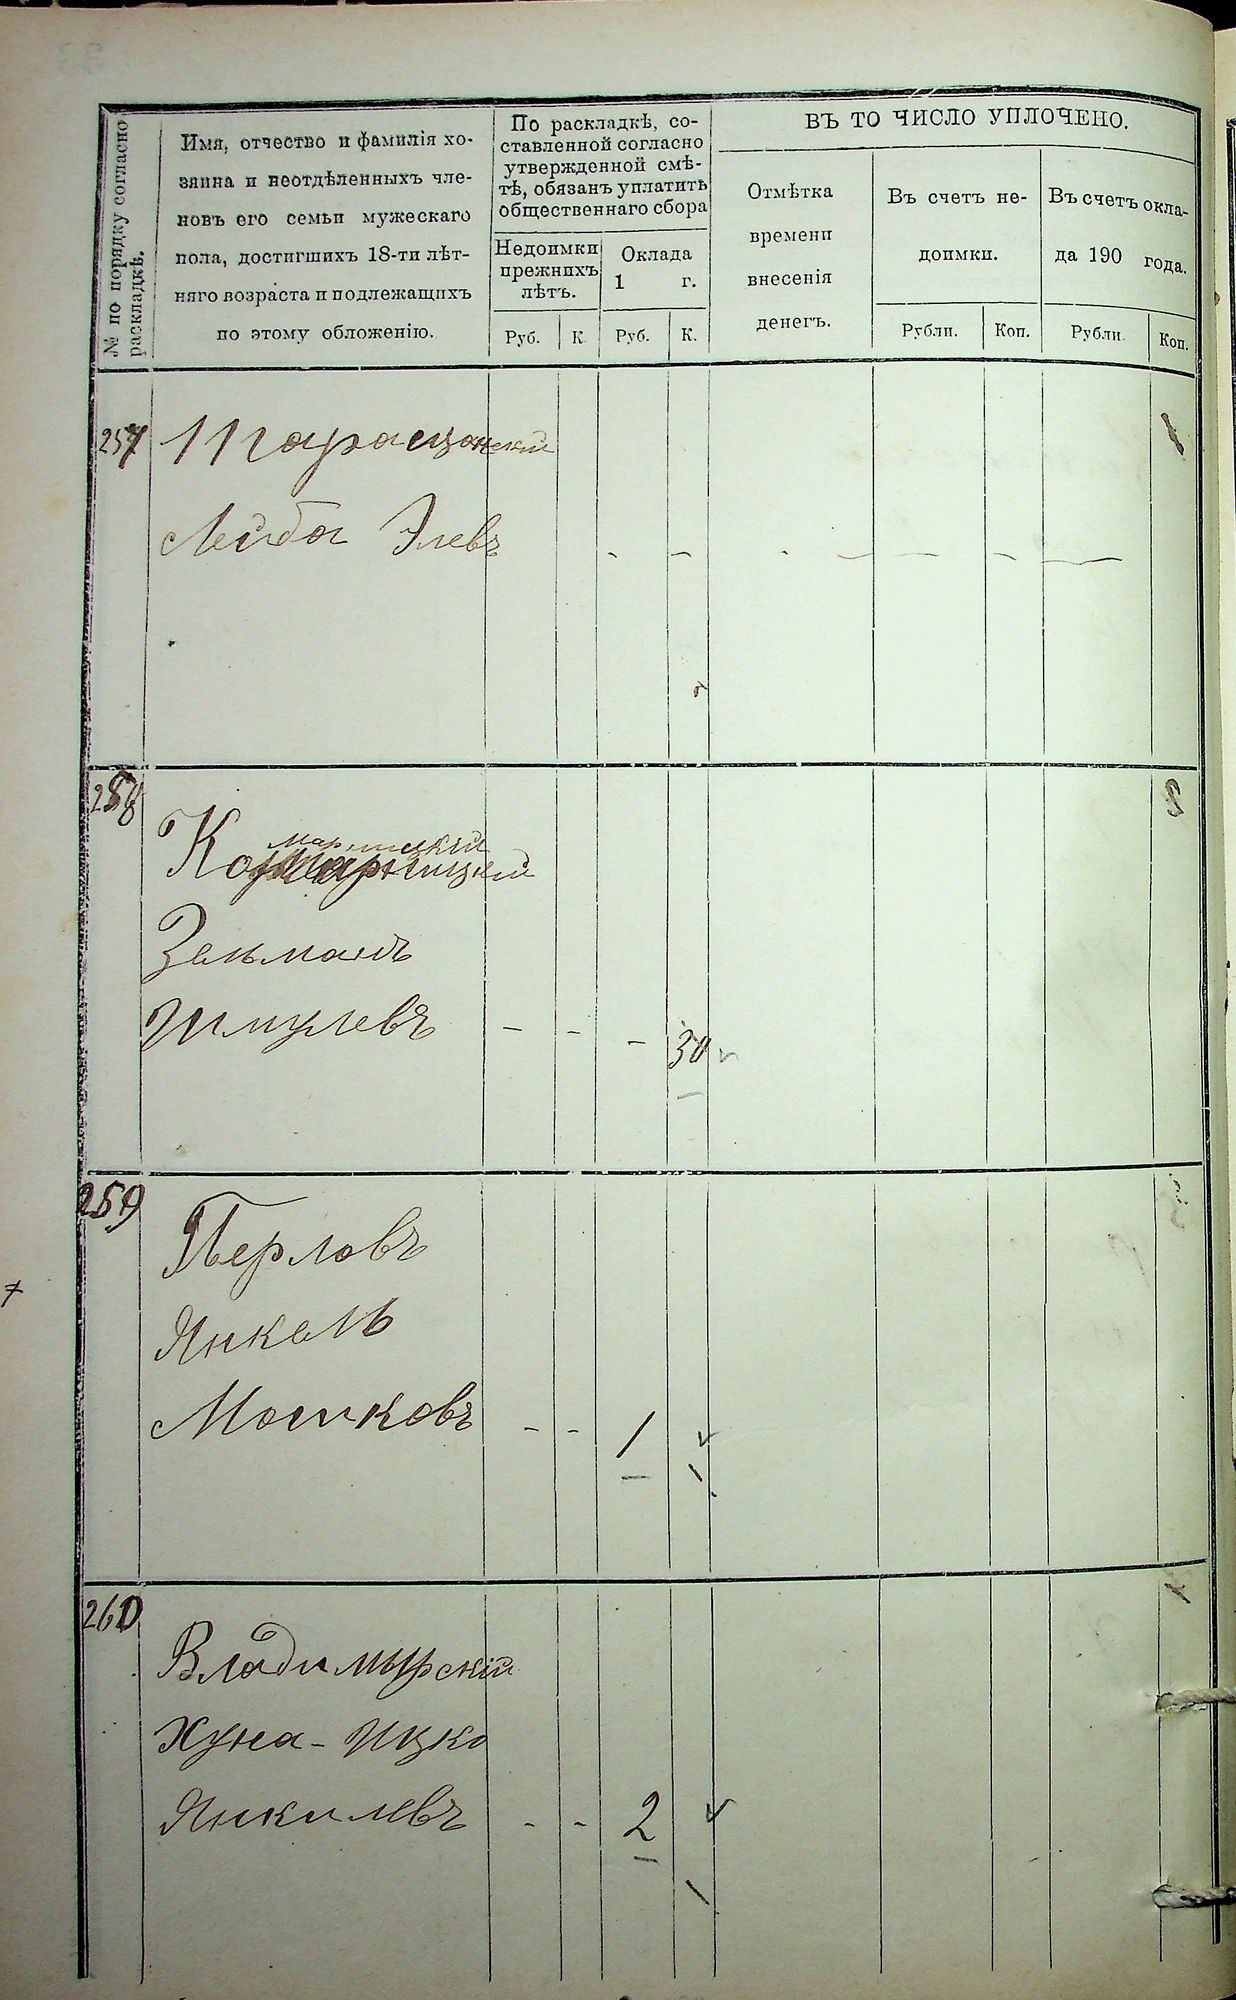 № по порядку согласно
раскладкѣ.
Имя, отчество и фамилія хо-
зяина и неотдѣленныхъ чле-
новъ его семьи мужескаго
пола, достигшихъ 18-ти лѣт-
няго возраста и подлежащихъ
по этому обложенію.
По раскладкѣ, со-
ставленной согласно
утвержденной смѣ-
тѣ, обязанъ уплатить
общественнаго сбора
Недоимки
прежнихъ
лѣтъ.
Оклада
1 г.
Руб. К. Руб. К.
ВЪ ТО ЧИСЛО УПЛОЧЕНО.
Отмѣтка
времени
внесенія
денегъ.
Въ счетъ не-
доимки.
Въ счетъ окла-
да 190 года.
Рубли. Коп. Рубли. Коп.
257 Таращанскій
Лейба Элевъ - - - - - - -
258
марницкій
Зельманъ
Шмулевъ - - - 30
259
Перловъ
Янкель
Мошковъ - - 1
260
Владимырскій
Хуна-Ицко
Янкилевъ - - 2